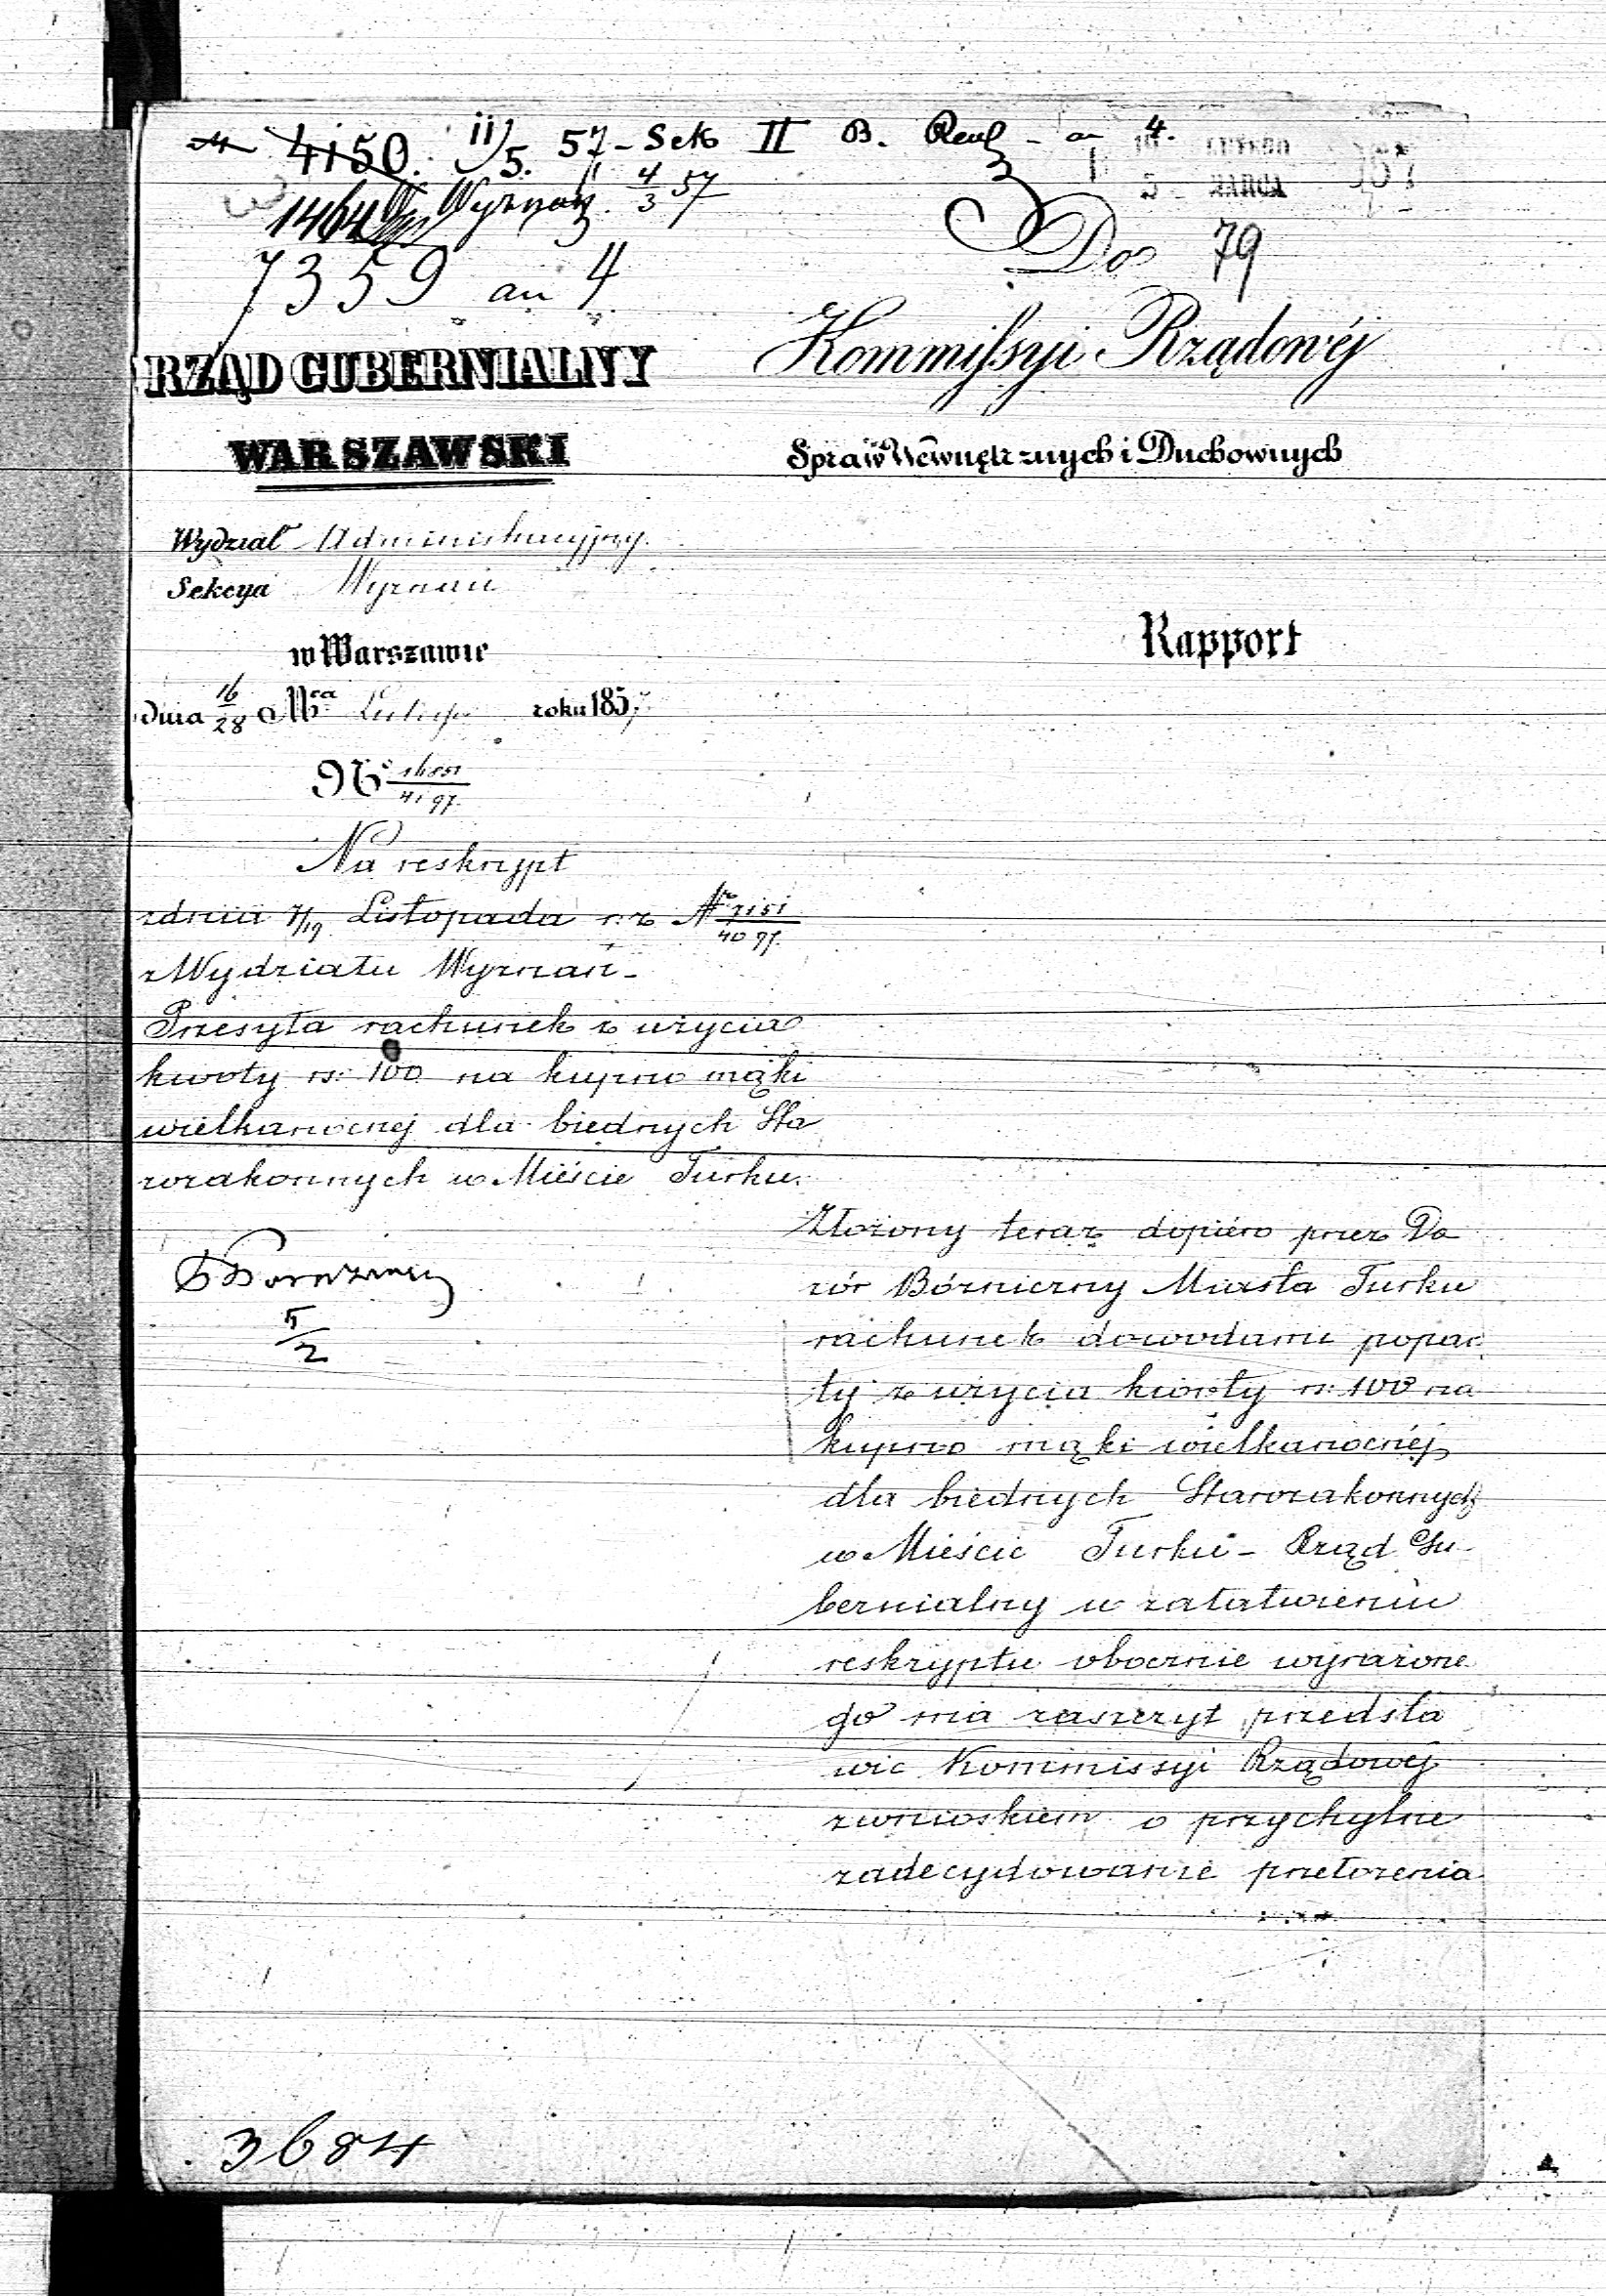 4150. 11/5. 57 - Sek II B.
1464 Wyznań. 4/3 57
7359 an 4
10 LUTEGO
5 MARCA 1857
Do 79
Kommissyi Rządowéj
Spraw Wewnętrznych i Duchownych
RZĄD GUBERNIALNY
WARSZAWSKI
Wydział Administracyjny.
Sekcya Wyznań
w Warszawie
dnia 16/28 Lutego roku 1857
Rapport
Na reskrypt
z dnia 7/19 Listopada r. z. Nr 7151/4097.
z Wydziału Wyznań -
Przesyła rachunek z użycia
kwoty rs: 100 na kupno mąki
wielkanocnej dla biednych Sta
rozakonnych w Mieście Turku.
5/2
Złożony teraz dopiéro przez Do
zór Bóżniczny Miasta Turku
rachunek dowodami popar
ty z użycia kwoty rs: 100 na
kupno mąki wielkanocnéj
dla biednych Starozakonnych
w Mieście Turku - Rząd Gu-
bernialny w załatwieniu
reskryptu obocznie wyrażone
go ma zaszczyt przedsta
wić Kommissyi Rządowej
z wnioskiem o przychylne
zadecydowanie przełożenia
3684